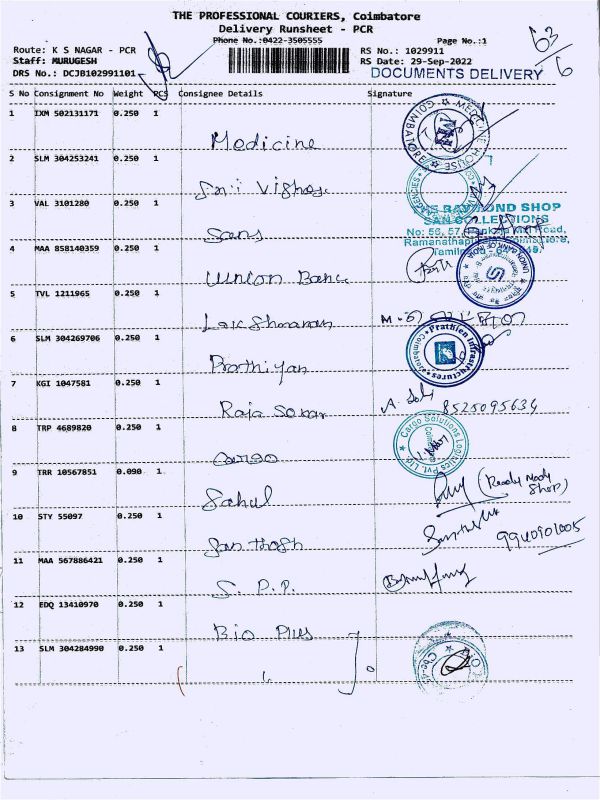 THE PROFESSIONAL COURIERS, Coimbatore
Delivery Runsheet - PCR
Phone No.:0422-3505555 Page No.:1
63/6
Route: K S NAGAR - PCR RS No.: 1029911
Staff: MURUGESH RS Date: 29-Sep-2022
DRS No.: DCJB102991101 DOCUMENTS DELIVERY
S No Consignment No Weight PCS Consignee Details Signature
1 IXM 502131171 0.250 1
Medicine
COIMBATORE MEDICINE HOUSE
2 SLM 304253241 0.250 1
Sri Vishnu
AGENCIES
3 VAL 3101280 0.250 1
RAYMOND SHOP
SAN COLLECTIONS
No: 56, 57, Road,
Ramanathapuram, Coimbatore,
Sans
4 MAA 858140359 0.250 1
Union Bank
UNION BANK OF INDIA
5 TVL 1211965 0.250 1
Lakshmanan
6 SLM 304269706 0.250 1
Prathiyan
Prathien Infrastructures
Coimbatore
7 KGI 1047581 0.250 1
Raja Sekar
8525095634
8 TRP 4689820 0.250 1
Cargo
Cargo Solutions Logistics Pvt. Ltd.
9 TRR 10567851 0.090 1
Sahul
(Ready Mady Shop)
10 STY 55097 0.250 1
Santhosh
9940901005
11 MAA 567886421 0.250 1
S. P. P.
12 EDQ 13410970 0.250 1
Bio Plus
13 SLM 304284990 0.250 1